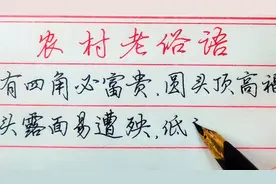 农村老俗语
有四角必富贵,圆头顶高福
头露面易遭殃,低